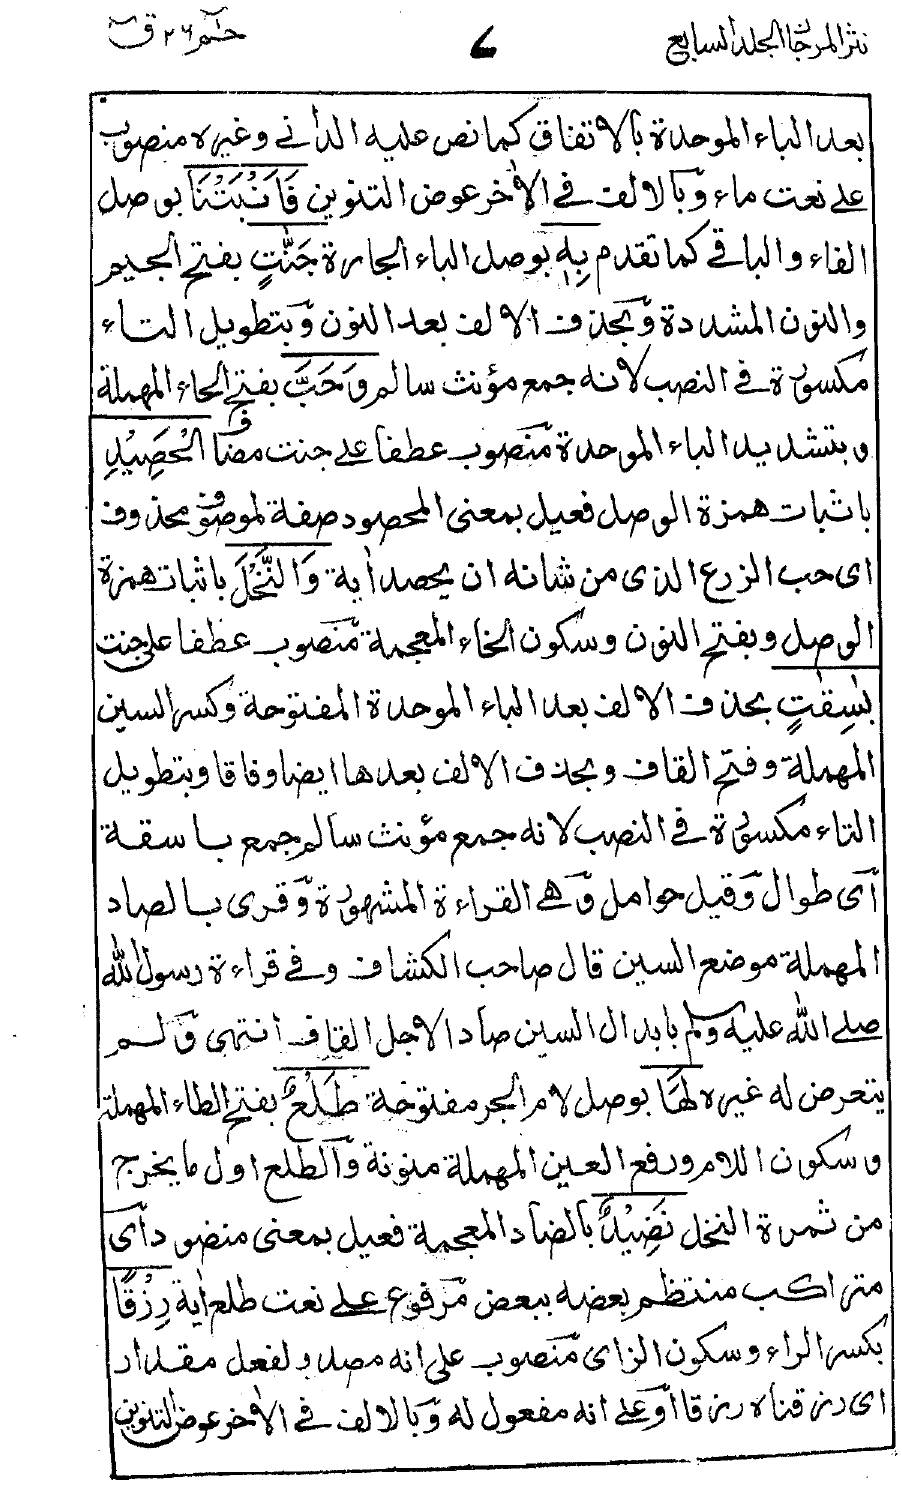 نثر المرجان الجلد السابع ۷ حٰمٓ ۲۶ قٓ
بعد الباء الموحدة بالاتفاق كما نص عليه الداني وغيره منصوب
على نعت ماء وبالالف في الأخر عوض التنوين فَاَنْۢبَتْنَا بوصل
الفاء والباقي كما تقدم بِهٖ بوصل الباء الجارة جَنّٰتٍ بفتح الجيم
والنون المشددة وبحذف الالف بعد النون وبتطويل التاء
مكسورة في النصب لانه جمع مؤنث سالم وَحَبَّ بفتح الحاء المهملة
وبتشديد الباء الموحدة منصوب عطفا على جنت مضاف الْحَصِيْدِ
باثبات همزة الوصل فعيل بمعنى المحصود صفة لموصوف محذوف
اى حب الزرع الذى من شانه ان يحصد أية وَالنَّخْلَ باثبات همزة
الوصل وبفتح النون وسكون الخاء المعجمة منصوب عطفا على جنت
بٰسِقٰتٍ بحذف الالف بعد الباء الموحدة المفتوحة وكسر السين
المهملة وفتح القاف وبحذف الالف بعدها ايضا وفاقا وبتطويل
التاء مكسورة في النصب لانه جمع مؤنث سالم جمع باسقة
أى طوال وقيل حوامل وهي القراءة المشهورة وقرى بالصاد
المهملة موضع السين قال صاحب الكشاف وفي قراءة رسول الله
صلى الله عليه وسلم بابدال السين صادا لاجل القاف انتهى ولم
يتعرض له غيره لَهَا بوصل لام الجر مفتوحة طَلْعٌ بفتح الطاء المهملة
وسكون اللام ورفع العين المهملة منونة والطلع اول ما يخرج
من ثمرة النخل نَضِيْدٌ بالضاد المعجمة فعيل بمعنى منضود أى
متراكب منتظم بعضه ببعض مرفوع على نعت طلع أية رِزْقًا
بكسر الراء وسكون الزاى منصوب على انه مصدر لفعل مقدر
اى رزقناه رزقا او على انه مفعول له وبالالف في الأخر عوض التنوين